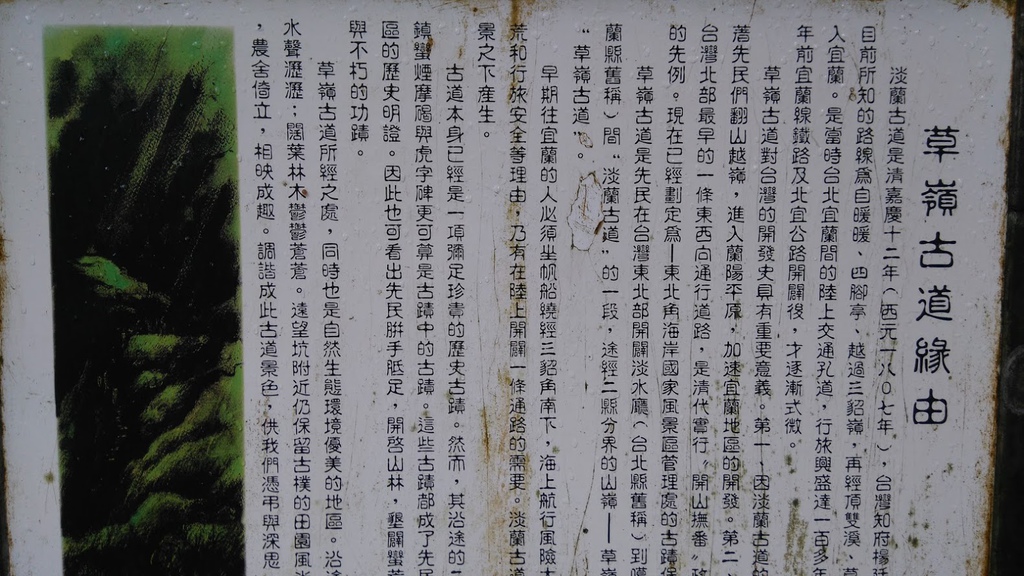 草嶺古道緣由
淡蘭古道是清嘉慶十二年（西元一八〇七年），台灣知府楊廷
目前所知的路線為自暖暖、四腳亭、越過三貂嶺，再經頂雙溪、草
入宜蘭。是當時台北宜蘭間的陸上交通孔道，行旅興盛達一百多年
年前宜蘭線鐵路及北宜公路開闢後，才逐漸式微。
草嶺古道對台灣的開發史具有重要意義。第一、因淡蘭古道的
著先民們翻山越嶺，進入蘭陽平原，加速宜蘭地區的開發。第二、
台灣北部最早的一條東西向通行道路，是清代實行〝開山撫番〞政
的先例。現在已經劃定為—東北角海岸國家風景區管理處的古蹟保
草嶺古道是先民在台灣東北部開闢淡水廳（台北縣舊稱）到噶
蘭縣舊稱）間〝淡蘭古道〞的一段，途經二縣分界的山嶺——草嶺
〝草嶺古道〞。
早期往宜蘭的人必須坐帆船繞經三貂角南下，海上航行風險大
荒和行旅安全等理由，乃有在陸上開闢一條通路的需要。淡蘭古道
景之下產生。
古道本身已經是一項彌足珍貴的歷史古蹟。然而，其沿途的二
鎮蠻煙摩碣與虎字碑更可算是古蹟中的古蹟。這些古蹟都成了先民
區的歷史明證。因此也可看出先民胼手胝足，開啓山林，墾闢蠻荒
與不朽的功蹟。
草嶺古道所經之處，同時也是自然生態環境優美的地區。沿途
水聲瀝瀝；闊葉林木鬱鬱蒼蒼。遠望坑附近仍保留古樸的田園風光
，農舍倚立，相映成趣。調諧成此古道景色，供我們憑弔與深思